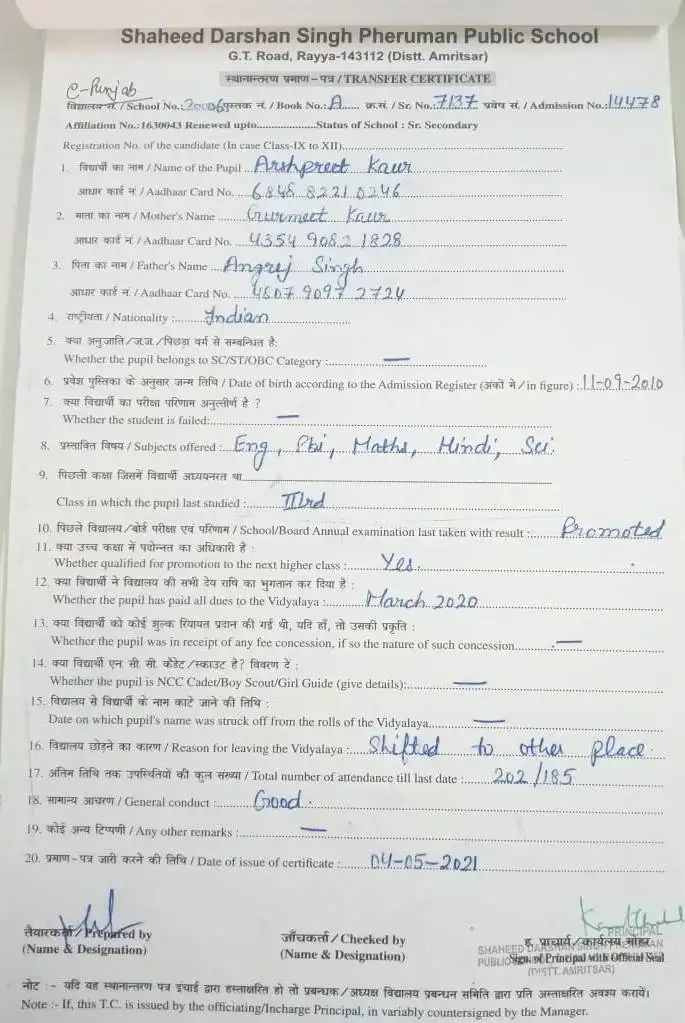 Shaheed Darshan Singh Pheruman Public School
G.T. Road, Rayya-143112 (Distt. Amritsar)
स्थानान्तरण प्रमाण – पत्र / TRANSFER CERTIFICATE
e-Punjab
विद्यालय सं. / School No.: 20006 पुस्तक नं. / Book No.: A..... क्र.सं. / Sr. No. 7137 प्रवेष सं. / Admission No.: 14478
Affiliation No.:1630043 Renewed upto....................Status of School : Sr. Secondary
Registration No. of the candidate (In case Class-IX to XII)....................
1. विद्यार्थी का नाम / Name of the Pupil ... Arshpreet Kaur
आधार कार्ड नं / Aadhaar Card No. .... 6848 8221 0246
2. माता का नाम / Mother's Name .... Gurmeet Kaur
आधार कार्ड नं / Aadhaar Card No. .... 4354 9082 1828
3. पिता का नाम / Father's Name .... Angrej Singh
आधार कार्ड नं / Aadhaar Card No. .... 4607 9097 2724
4. राष्ट्रीयता / Nationality :....... Indian
5. क्या अनुजाति / ज.ज. / पिछड़ा वर्ग से सम्बन्धित है:
Whether the pupil belongs to SC/ST/OBC Category :.......... —
6. प्रवेश पुस्तिका के अनुसार जन्म तिथि / Date of birth according to the Admission Register (अंकों मे / in figure) : 11-09-2010
7. क्या विद्यार्थी का परीक्षा परिणाम अनुत्तीर्ण है ?
Whether the student is failed:.......... —
8. प्रस्तावित विषय / Subjects offered : Eng, Pbi, Maths, Hindi, Sci.
9. पिछली कक्षा जिसमें विद्यार्थी अध्ययनरत था
Class in which the pupil last studied :.......... IIIrd
10. पिछले विद्यालय / बोर्ड परीक्षा एवं परिणाम / School/Board Annual examination last taken with result :...... Promoted
11. क्या उच्च कक्षा में पदोन्नत का अधिकारी है :
Whether qualified for promotion to the next higher class :......... Yes.
12. क्या विद्यार्थी ने विद्यालय की सभी देय राषि का भुगतान कर दिया है :
Whether the pupil has paid all dues to the Vidyalaya :.......... March 2020
13. क्या विद्यार्थी को कोई शुल्क रियायत प्रदान की गई थी, यदि हाँ, तो उसकी प्रकृति :
Whether the pupil was in receipt of any fee concession, if so the nature of such concession.......... —
14. क्या विद्यार्थी एन. सी. सी. कैडेट / स्काउट है? विवरण दें :
Whether the pupil is NCC Cadet/Boy Scout/Girl Guide (give details):.......... —
15. विद्यालय से विद्यार्थी के नाम काटे जाने की तिथि :
Date on which pupil's name was struck off from the rolls of the Vidyalaya.......... —
16. विद्यालय छोड़ने का कारण / Reason for leaving the Vidyalaya :.... Shifted to other place.
17. अंतिम तिथि तक उपस्थितियों की कुल संख्या / Total number of attendance till last date :....... 202/185
18. सामान्य आचरण / General conduct :........ Good.
19. कोई अन्य टिप्पणी / Any other remarks :.......... —
20. प्रमाण – पत्र जारी करने की तिथि / Date of issue of certificate :....... 04-05-2021
तैयारकर्ता / Prepared by
(Name & Designation)
जाँचकर्ता / Checked by
(Name & Designation)
PRINCIPAL
ह. प्राचार्य / कार्यलय मोहर
SHAHEED DARSHAN SINGH PHERUMAN
Sign. of Principal with Official Seal
PUBLIC
(DISTT. AMRITSAR)
नोट :- यदि यह स्थानान्तरण पत्र इंचार्ई द्वारा हस्ताक्षरित हो तो प्रबन्धक / अध्यक्ष विद्यालय प्रबन्धन समिति द्वारा प्रति अस्ताक्षरित अवश्य करायें।
Note :- If, this T.C. is issued by the officiating/Incharge Principal, in variably countersigned by the Manager.